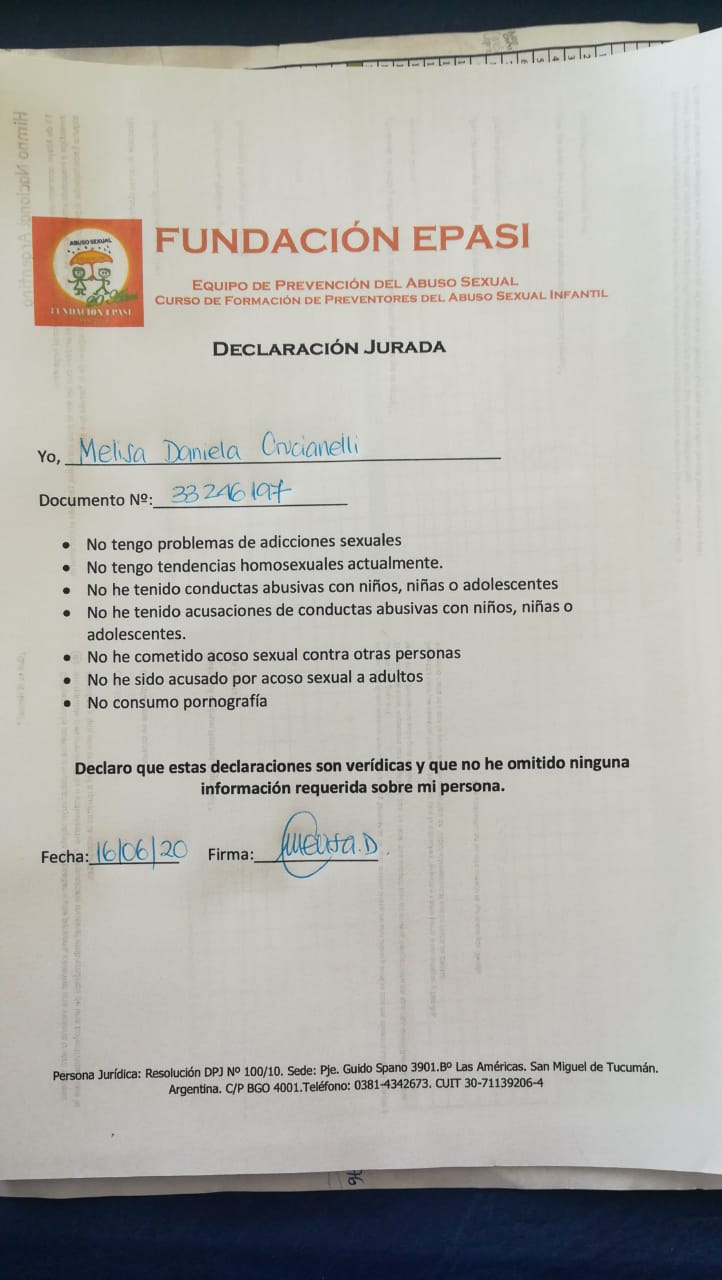 ABUSO SEXUAL
FUNDACIÓN EPASI
FUNDACIÓN EPASI
Equipo de Prevención del Abuso Sexual
Curso de Formación de Preventores del Abuso Sexual Infantil
Declaración Jurada
Yo, Melisa Daniela Crucianelli
Documento Nº: 33246197
• No tengo problemas de adicciones sexuales
• No tengo tendencias homosexuales actualmente.
• No he tenido conductas abusivas con niños, niñas o adolescentes
• No he tenido acusaciones de conductas abusivas con niños, niñas o
adolescentes.
• No he cometido acoso sexual contra otras personas
• No he sido acusado por acoso sexual a adultos
• No consumo pornografía
Declaro que estas declaraciones son verídicas y que no he omitido ninguna
información requerida sobre mi persona.
Fecha: 16/06/20 Firma: Melisa.D.
Persona Jurídica: Resolución DPJ Nº 100/10. Sede: Pje. Guido Spano 3901.Bº Las Américas. San Miguel de Tucumán.
Argentina. C/P BGO 4001.Teléfono: 0381-4342673. CUIT 30-71139206-4